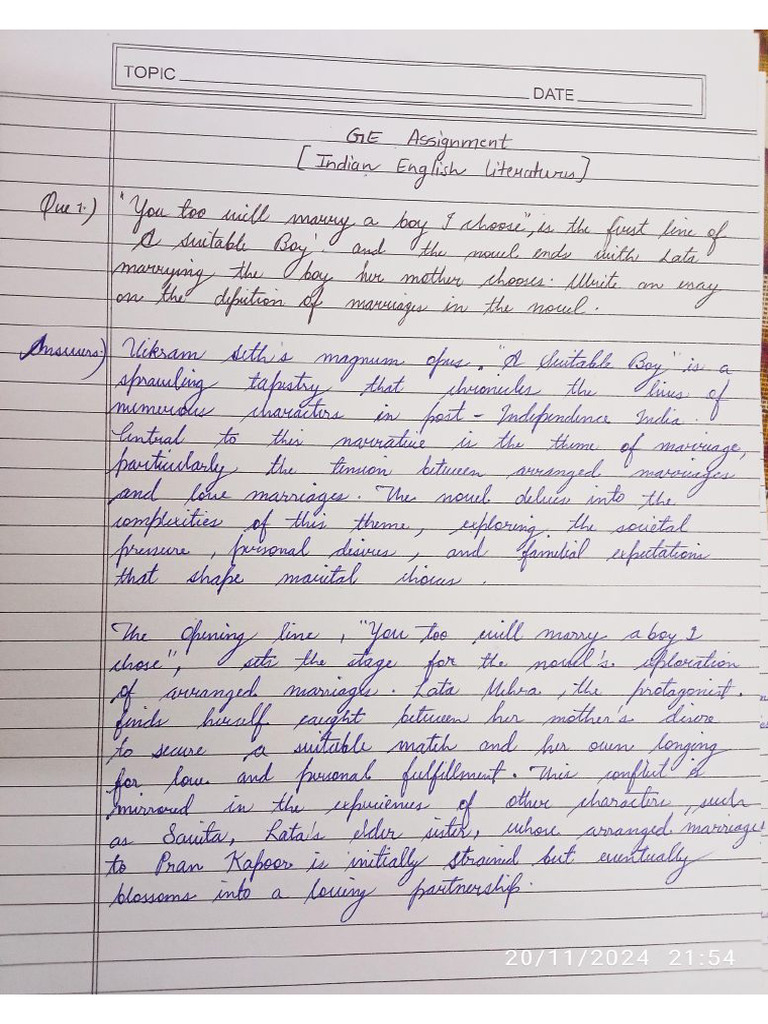 TOPIC
DATE
GE Assignment
[Indian English Literatures]
Que 1.) "You too will marry a boy I choose", is the first line of
'A Suitable Boy'. and the novel ends with Lata
marrying the boy her mother chooses. Write an essay
on the depiction of marriages in the novel.
Answers:) Vikram Seth's magnum opus, "A Suitable Boy" is a
sprawling tapestry that chronicles the lives of
numerous characters in post - Independence India.
Central to this narrative is the theme of marriage,
particularly the tension between arranged marriages
and love marriages. The novel delves into the
complexities of this theme, exploring the societal
pressure, personal desires, and familial expectations
that shape marital choices.
The opening line, "You too will marry a boy I
chose", sets the stage for the novel's exploration
of arranged marriages. Lata Mehra, the protagonist.
finds herself caught between her mother's desire
to secure a suitable match and her own longing
for love and personal fulfillment. This conflict is
mirrored in the experiences of other characters, such
as Savita, Lata's elder sister, whose arranged marriage
to Pran Kapoor is initially strained but eventually
blossoms into a loving partnership.
20/11/2024 21:54